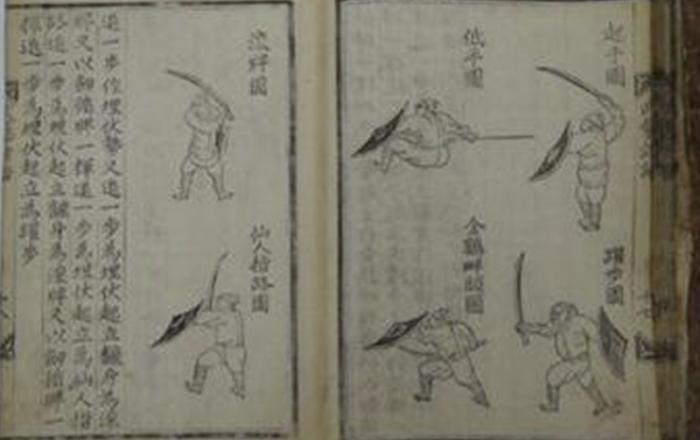 起手圖
躍步圖
低平圖
金鷄畔頭圖
滾牌圖
仙人指路圖
退一步作埋伏勢又進一步為埋伏起立飜身為滾
牌又以劒循牌一揮進一步為埋伏起立為仙人指
路進一步為埋伏起立飜身為滾牌又以劒循牌一
揮進一步為埋伏起立為躍步